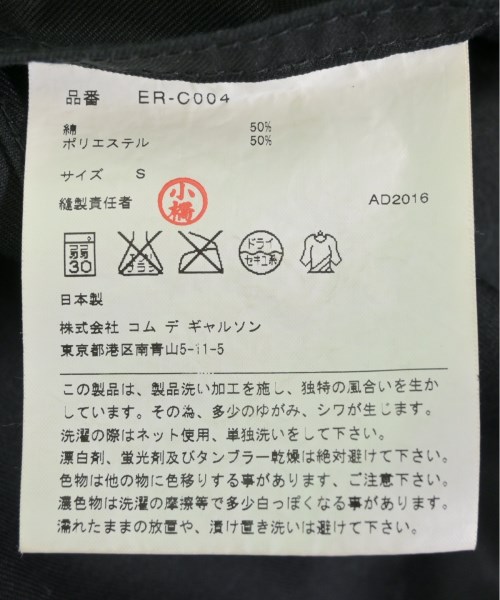 品番 ER-C004
綿 50%
ポリエステル 50%
サイズ S
縫製責任者 小橋 AD2016
弱 30 エンソ サラシ ドライ セキユ系
日本製
株式会社 コム デ ギャルソン
東京都港区南青山5-11-5
この製品は、製品洗い加工を施し、独特の風合いを生か
しています。その為、多少のゆがみ、シワが生じます。
洗濯の際はネット使用、単独洗いをして下さい。
漂白剤、蛍光剤及びタンブラー乾燥は絶対避けて下さい。
色物は他の物に色移りする事があります、ご注意下さい。
濃色物は洗濯の摩擦等で多少白っぽくなる事があります。
濡れたままの放置や、漬け置き洗いは避けて下さい。